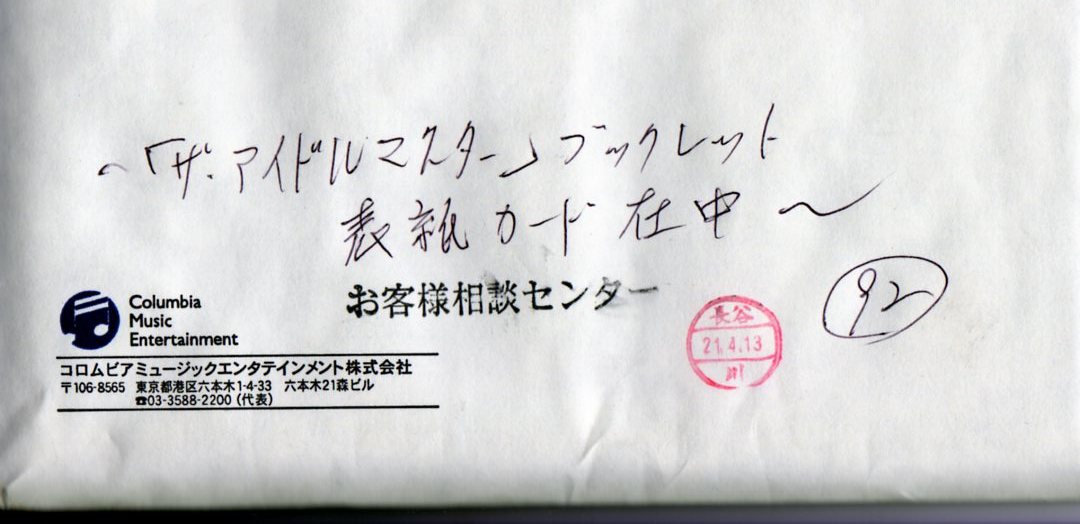 ～「ザ・アイドルマスター」ブックレット
表紙カード在中～
お客様相談センター
92
長谷
21.4.13
川
Columbia
Music
Entertainment
コロムビアミュージックエンタテインメント株式会社
〒106-8565 東京都港区六本木1-4-33 六本木21森ビル
☎03-3588-2200(代表)